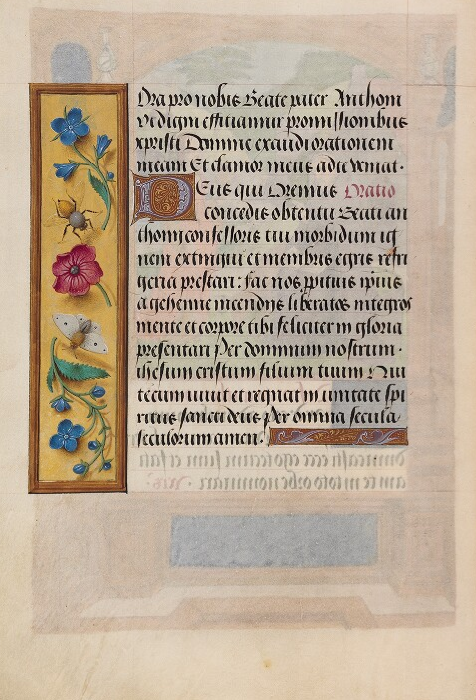 Ora pro nobis Beate pater Anthoni
Vt digni efficiamur promissionibus
xpristi Domine exaudi orationem
meam Et clamor meus ad te veniat.
Deus qui Oremus Oratio
concedis obtentu Beati an
thoni confessoris tui morbidum ig
nem extingui et membris egris refri
geria prestari: fac nos ppitius ipsius
a gehenne incendiis liberatos integros
mente et corpore tibi feliciter in gloria
presentari Per dominum nostrum.
ihesum cristum filium tuum Qui
tecum uiuit et regnat in unitate spi
ritus sancti deus Per omnia secula
seculorum amen.